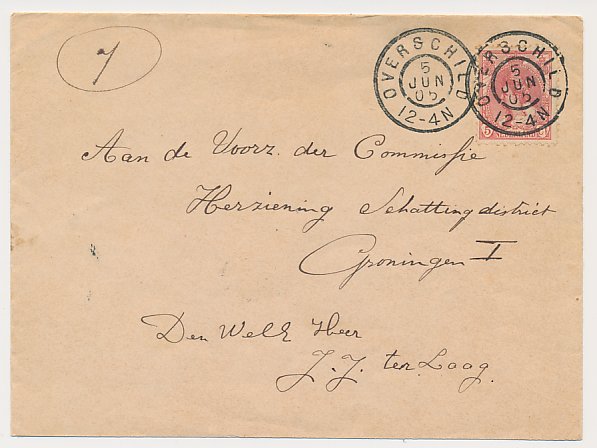 7
OVERSCHILD
5
JUN
05
12-4N
OVERSCHILD
5
JUN
05
12-4N
5
Aan de Voorz. der Commissie
Herziening Schattingdistrict
Groningen I
Den WelE Heer
J. J. ter Laag.